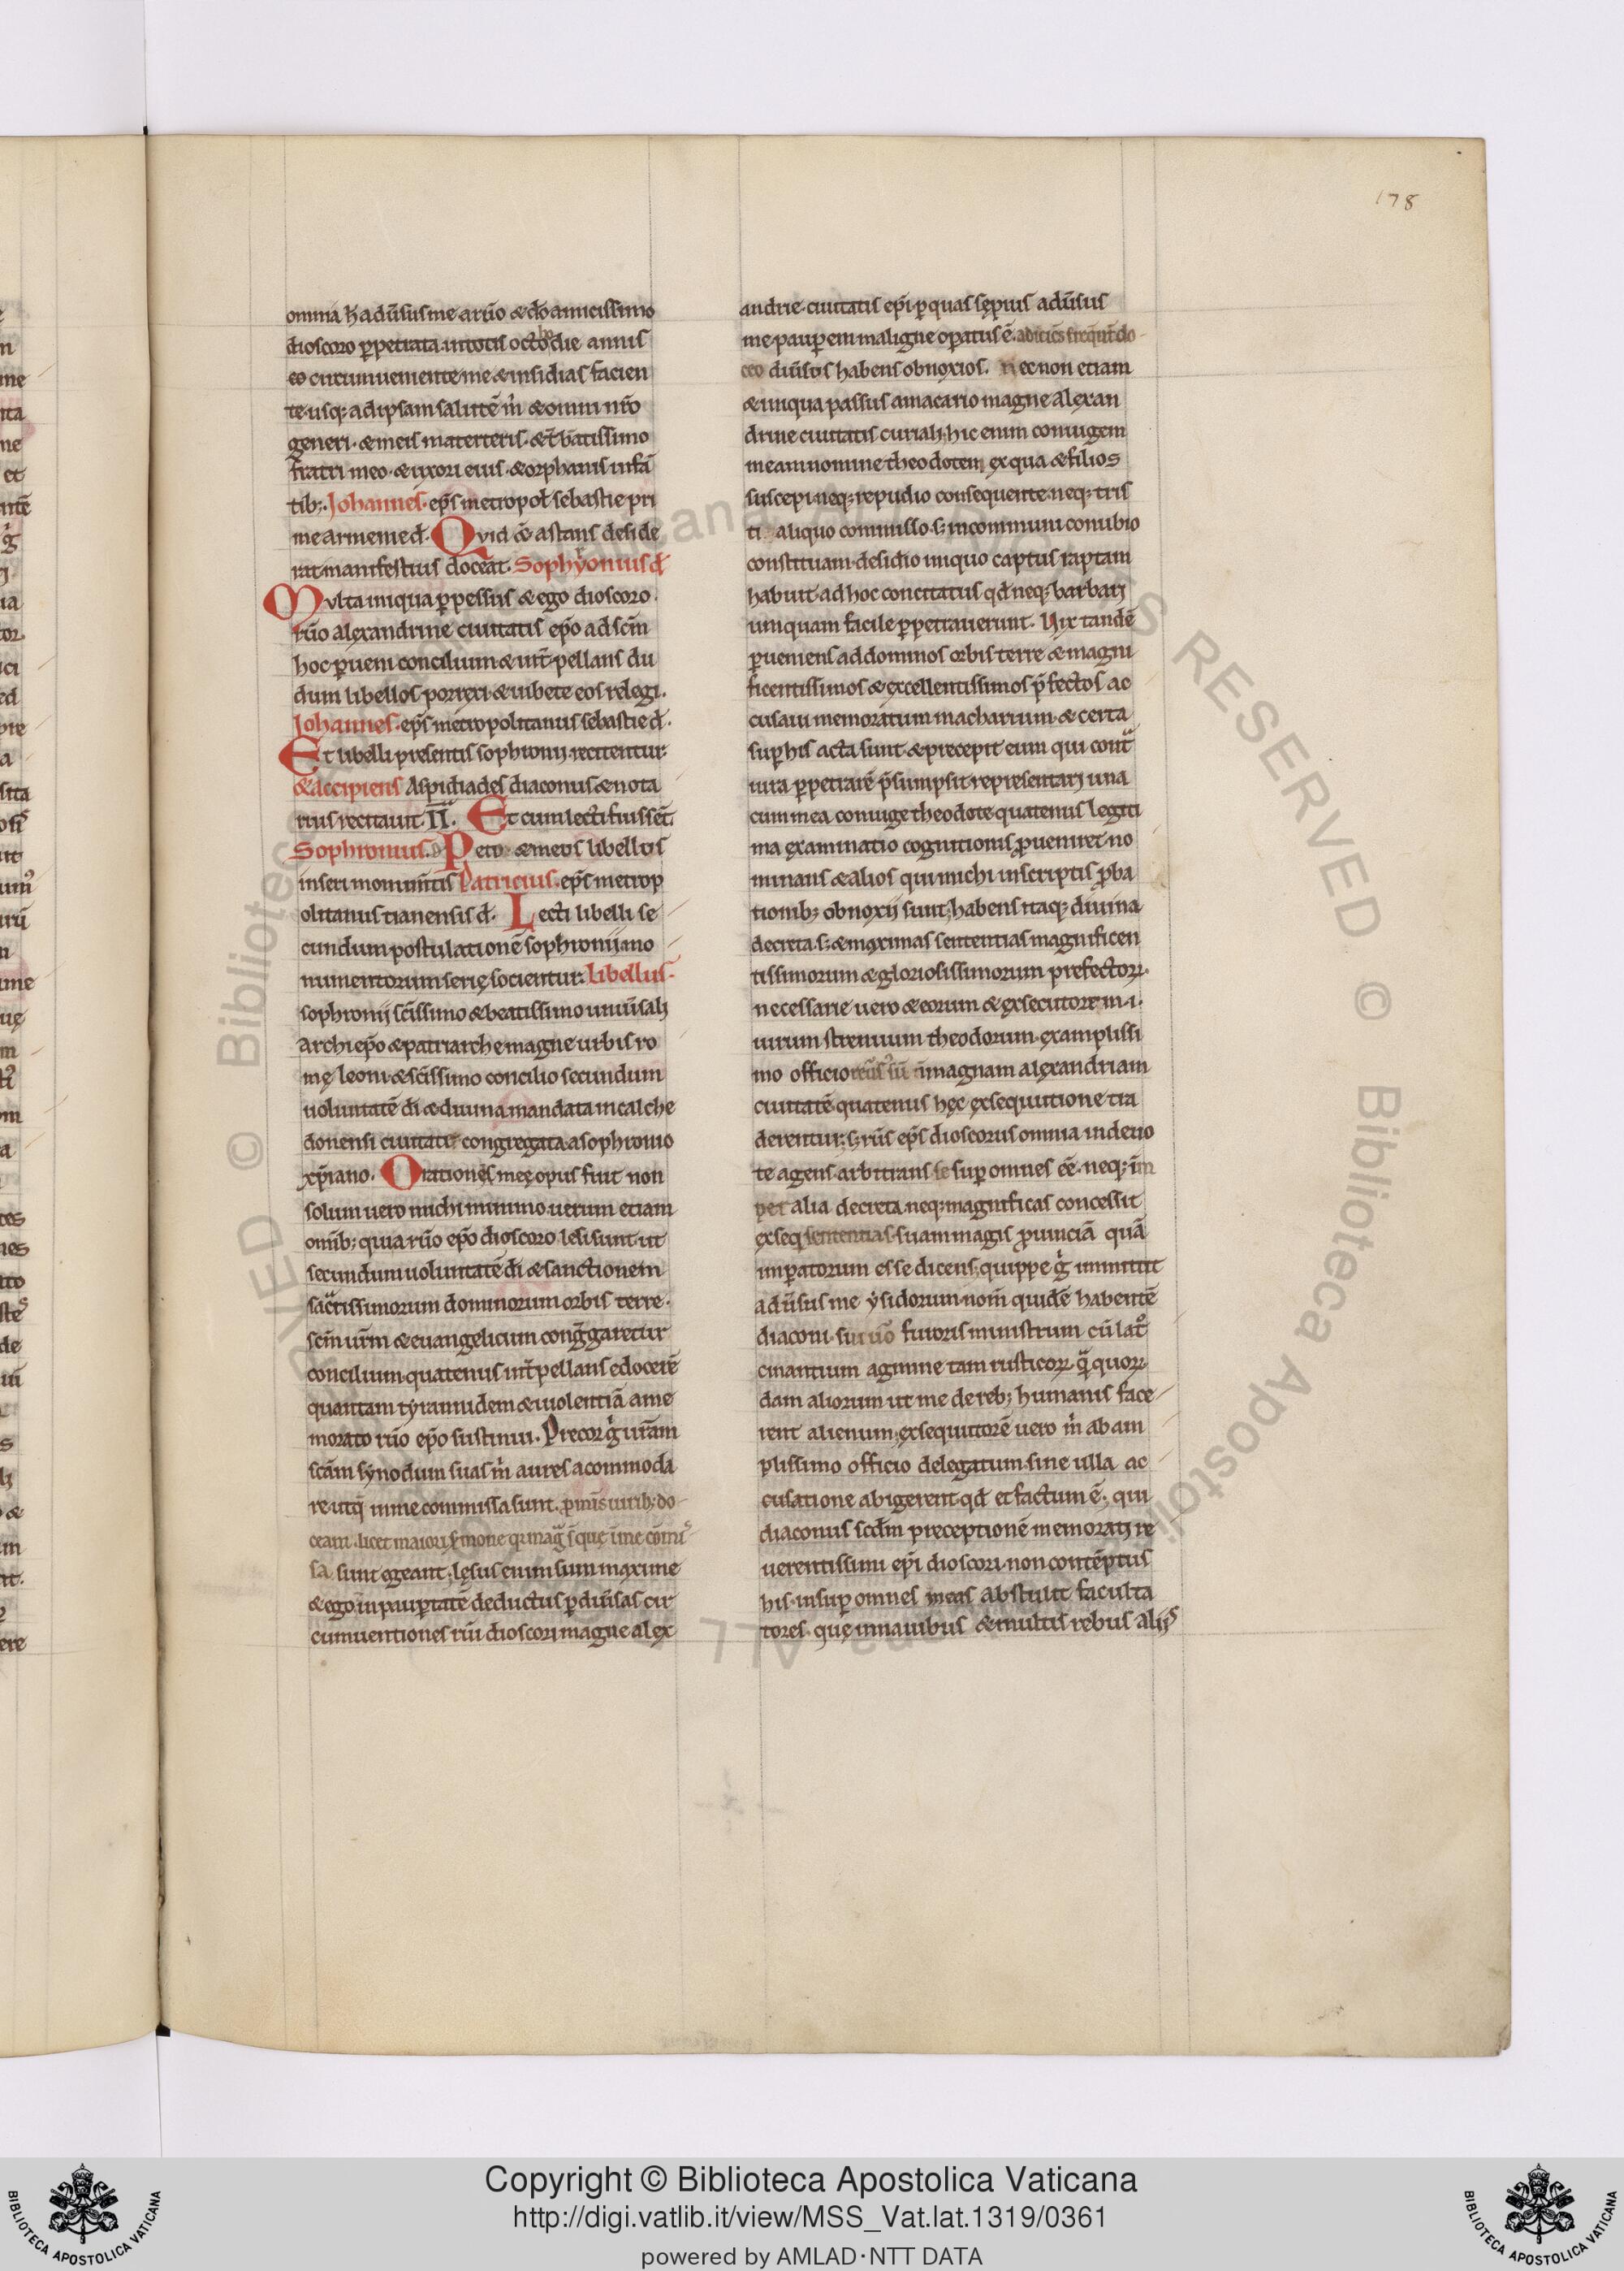 178
omnia h̄ adūsus me a rūo & dō amicissimo
dioscoro ꝑpetrata in totis octo die annis
eo circumueniente me & insidias facien
te usq; ad ipsam salutē m̄ & omni nr̄o
generi · & meis materteris · &
fratri meo · & uxori eius · & orphanis infā
tib; · Johannes · ep̄s metropoł sebastie pri
me armenie đ · Qvid & astans deside
rat manifestius doceat · Sophyonius đ
Mvlta iniqua ꝑpessus & ego dioscoro ·
rūo alexandrine ciuitatis ep̄o ad sc̄m
hoc ꝑueni concilium & int̄pellans du
dum libellos porrexi & iubete eos relegi ·
Johannes · ep̄s metropolitanus sebastie đ ·
Et libelli presentis sophronii recitentur
& accipiens Aspidiades diaconus & nota
rius recitauit II · Et cum lecti fuissēt
Sophronius · Peto & meos libellos
inseri monim̄tis Patricius · ep̄s metrop
olitanus tianensis đ · Lecti libelli se
cundum postulationē sophronii mo
numentorum serię socientur · libellus ·
sophronij sc̄issimo & beatissimo uniūsali
archiep̄o & patriarche magne urbis ro
mę leoni & sc̄issimo concilio secundum
uoluntatē dī & diuina mandata in calche
donensi ciuitate congregata a sophronio
xp̄iano · Orationes meę opus fuit non
solum uero michi minimo uerum etiam
omīb; quia rūo ep̄o dioscoro lesi sunt ut
secundum uoluntatē dī & sanctionem
sacratissimorum dominorum orbis terre ·
sc̄m ur̄m & euangelicum congregaretur
concilium quatenus int̄pellans edocerē
quantam tyrannidem & uiolentiā a me
morato rūo ep̄o sustinui · Precor g̊ ur̄am
sc̄am synodum suas m̄ aures acommoda
re utq̄ in me commissa sunt · ꝑ m̄is uirib; do
ceam · licet maiori s̄mone quę in me com̄is
sa sunt egeant · lęsus enim sum maxime
& ego in pauꝑtatē deductus ꝑ diūsas cir
cumuentiones rūi dioscori magne alex
andrie ciuitatis ep̄i · ꝑ quas sępius adūsus
me pauꝑem maligne oꝑatus ē
diūsos habens obnoxios · Nec non etiam
& iniqua passus a macario magne alexan
drine ciuitatis curiali · hic enim coniugem
meam nomine theodotem ex qua & filios
suscepi · neq; repudio consequente neq; tris
ti aliquo commisso · s; in communi conubio
constituam · desidio iniquo captus raptam
habuit · ad hoc concitatus qđ neq; barbari
umquam facile ꝑpetrauerunt · Vix tandē
ꝑueniens ad dominos orbis terre & magni
ficentissimos & excellentissimos p̄fectos ac
cusaui memoratum macharium · & certa
suꝑ his acta sunt & precepit eum qui cont̄
iura ꝑpetrare p̄sumpsit representari una
cum mea coniuge theodote quatenus legiti
ma examinatio cognitionis ꝓueniret no
minans & alios qui michi inscriptis ꝓba
tionib; obnoxij sunt · habens itaq; diuina
decreta · s; & maximas sententias magnificen
tissimorum & gloriosissimorum prefectoꝝ
necessarie uero & eorum & exsecutorem · i ·
uirum strenuum theodorum · ex amplissi
mo officio magnam alexandriam
ciuitatē quatenus hęc exsequutione tra
derentur · s; rūs ep̄s dioscorus omnia indeuo
te agens arbitrans se suꝑ omnes eē · neq; im
peralia decreta neq; magnificas concessit
exseq sententias · suam magis ꝓuinciā quā
imꝑatorum esse dicens · quippe g̊ immittit
adūsus me ysidorum nom̄ quidē habentē
diaconi · sui uō furoris ministrum cū lat̊
cinantium agmine tam rusticoꝝ q̄ quoꝝ
dam aliorum ut me de reb; humanis face
rent alienum · exsequutorē uero m̄ ab am
plissimo officio delegatum · sine ulla ac
cusatione abigerent · qđ et factum ē · qui
diaconus scđm preceptionē memorati re
uerentissimi ep̄i dioscori · non contēptus
his · insuꝑ omnes meas abstulit faculta
tores · quę in nauibus & multis rebus alijs
Copyright © Biblioteca Apostolica Vaticana
http://digi.vatlib.it/view/MSS_Vat.lat.1319/0361
powered by AMLAD·NTT DATA
BIBLIOTECA APOSTOLICA VATICANA
BIBLIOTECA APOSTOLICA VATICANA